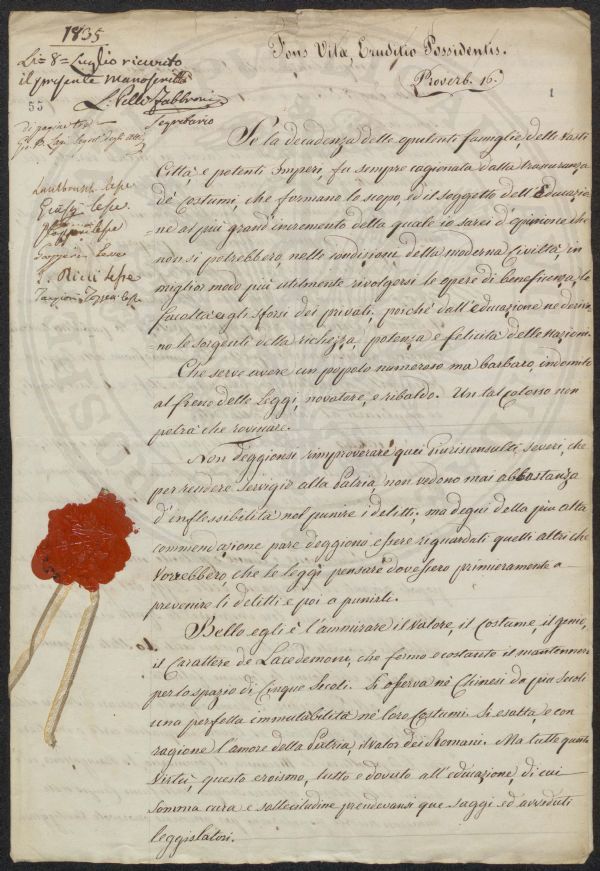 1835
Li = 8 = Luglio ricevuto
il presente manoscritto
L. Pello Fabbroni
Segretario
55
1
di pagine
Lambruschi lesse
lesse
lesse
Gazzeri lesse
Ridi lesse
Targioni Tozzetti lesse
Fons Vitæ, Eruditio Possidentis.
Proverb. 16.
Se la decadenza delle opulenti famiglie, delle vasti
Città, e potenti Imperi, fu sempre cagionata dalla trascuranza
de' Costumi, che formano lo scopo, ed il soggetto dell'Educazio-
ne al più grand'incremento della quale io sarei d'opinione che
non si potrebbero nelle condizioni della moderna Civiltà, in
miglior modo più utilmente rivolgersi le opere di beneficenza, le
facoltà e gli sforzi dei privati, poichè dall'educazione ne deriva-
no le sorgenti della richezza, potenza e felicità delle Nazioni.
Che serve avere un popolo numeroso ma barbaro, indomito
al freno delle Leggi, novatore, e ribaldo. Un tal Colosso non
potrà che rovinare.
Non deggionsi rimproverare quei Giurisconsulti severi, che
per rendere servigio alla Patria non vedono mai abbastanza
d'inflessibilità nel punire i delitti, ma degni della più alta
commendazione pare deggiono essere riguardati quelli altri che
vorrebbero, che le leggi pensare dovessero primieramente a
prevenire li delitti e poi a punirli.
Bello egli è l'ammirare il valore, il costume, il genio,
il Carattere de' Lacedemoni, che fermo e costante il mantennero
per lo spazio di Cinque Secoli. Si osserva ne' Chinesi da più Secoli
una perfetta immutabilità ne' loro Costumi. Si esalta, e con
ragione l'amore della Patria, il valor dei Romani. Ma tutte queste
Virtù, questo eroismo, tutto è dovuto all'educazione, di cui
somma cura e sollecitudine prendevansi que' saggi ed avveduti
leggislatori.